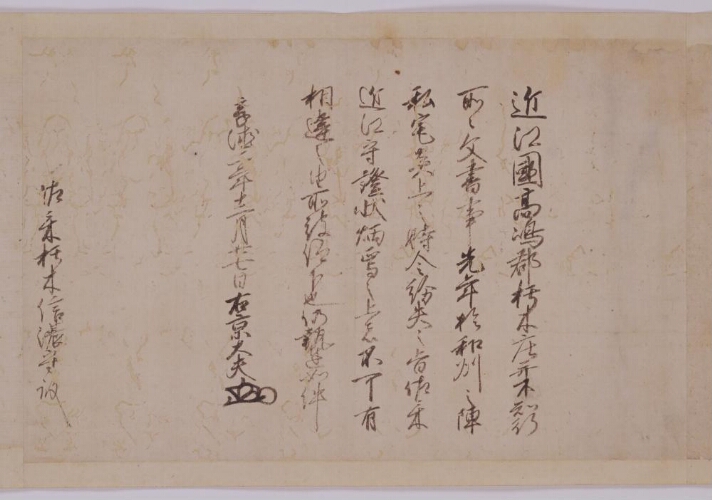 近江國高嶋郡朽木庄并案主名
所々文書事先年於和州之陣
私宅炎上之時令紛失之旨佐々木
近江守證状炳焉之上者不可有
相違之由所被仰下也仍執達如件
享徳二年十二月廿七日右京大夫
佐々木朽木信濃守殿